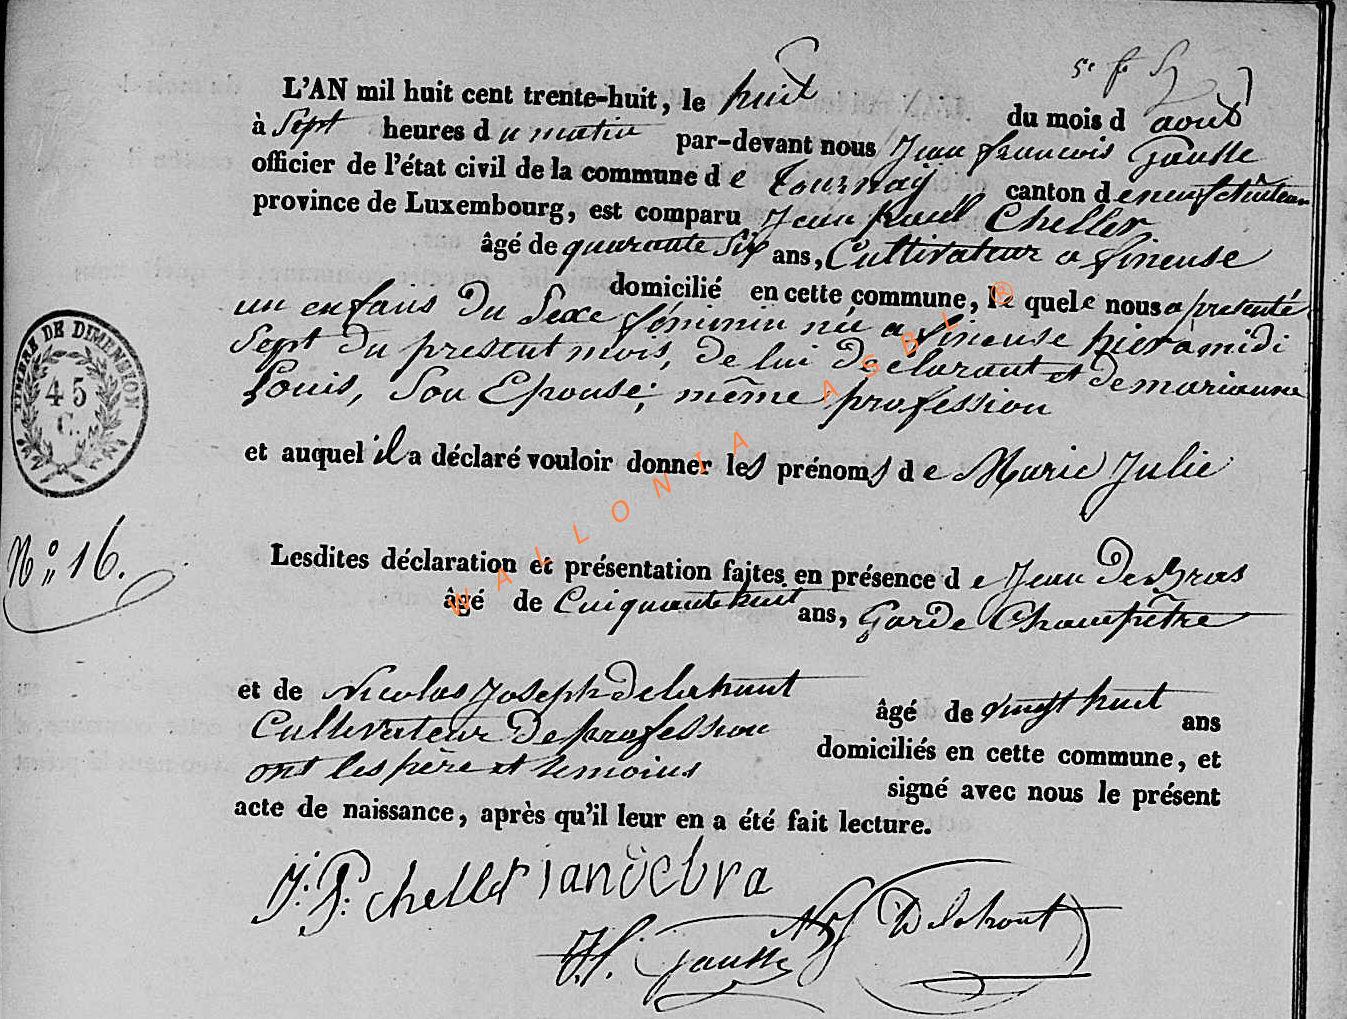 5e f
L'AN mil huit cent trente-huit, le huit du mois d aout
à Sept heures du matin par-devant nous Jean francois Gausse
officier de l'état civil de la commune de Tournaÿ canton de neufchâteau
province de Luxembourg, est comparu Jean Paul Cheller
âgé de quarante Six ans, Cultivateur a fineuse
domicilié en cette commune, le quel e nous a presenté
un enfans du Sexe féminin née a fineuse hier à midi
Sept du present mois, de lui déclarant et de marianne
Louis, Son Epouse, même profession
et auquel il a déclaré vouloir donner les prénoms de Marie Julie
TIMBRE DE DIMENSION
45
C.
No 16.
Lesdites déclaration et présentation faites en présence de Jean De Bras
âgé de Cinquante huit ans, Garde Champêtre
et de Nicolas Joseph Delahaut âgé de vingt huit ans
Cultivateur De profession domiciliés en cette commune, et
ont les père et temoins signé avec nous le présent
acte de naissance, après qu'il leur en a été fait lecture.
J: P: cheller jandebra
Gausse Delahout
WALLONIA ASBL ®